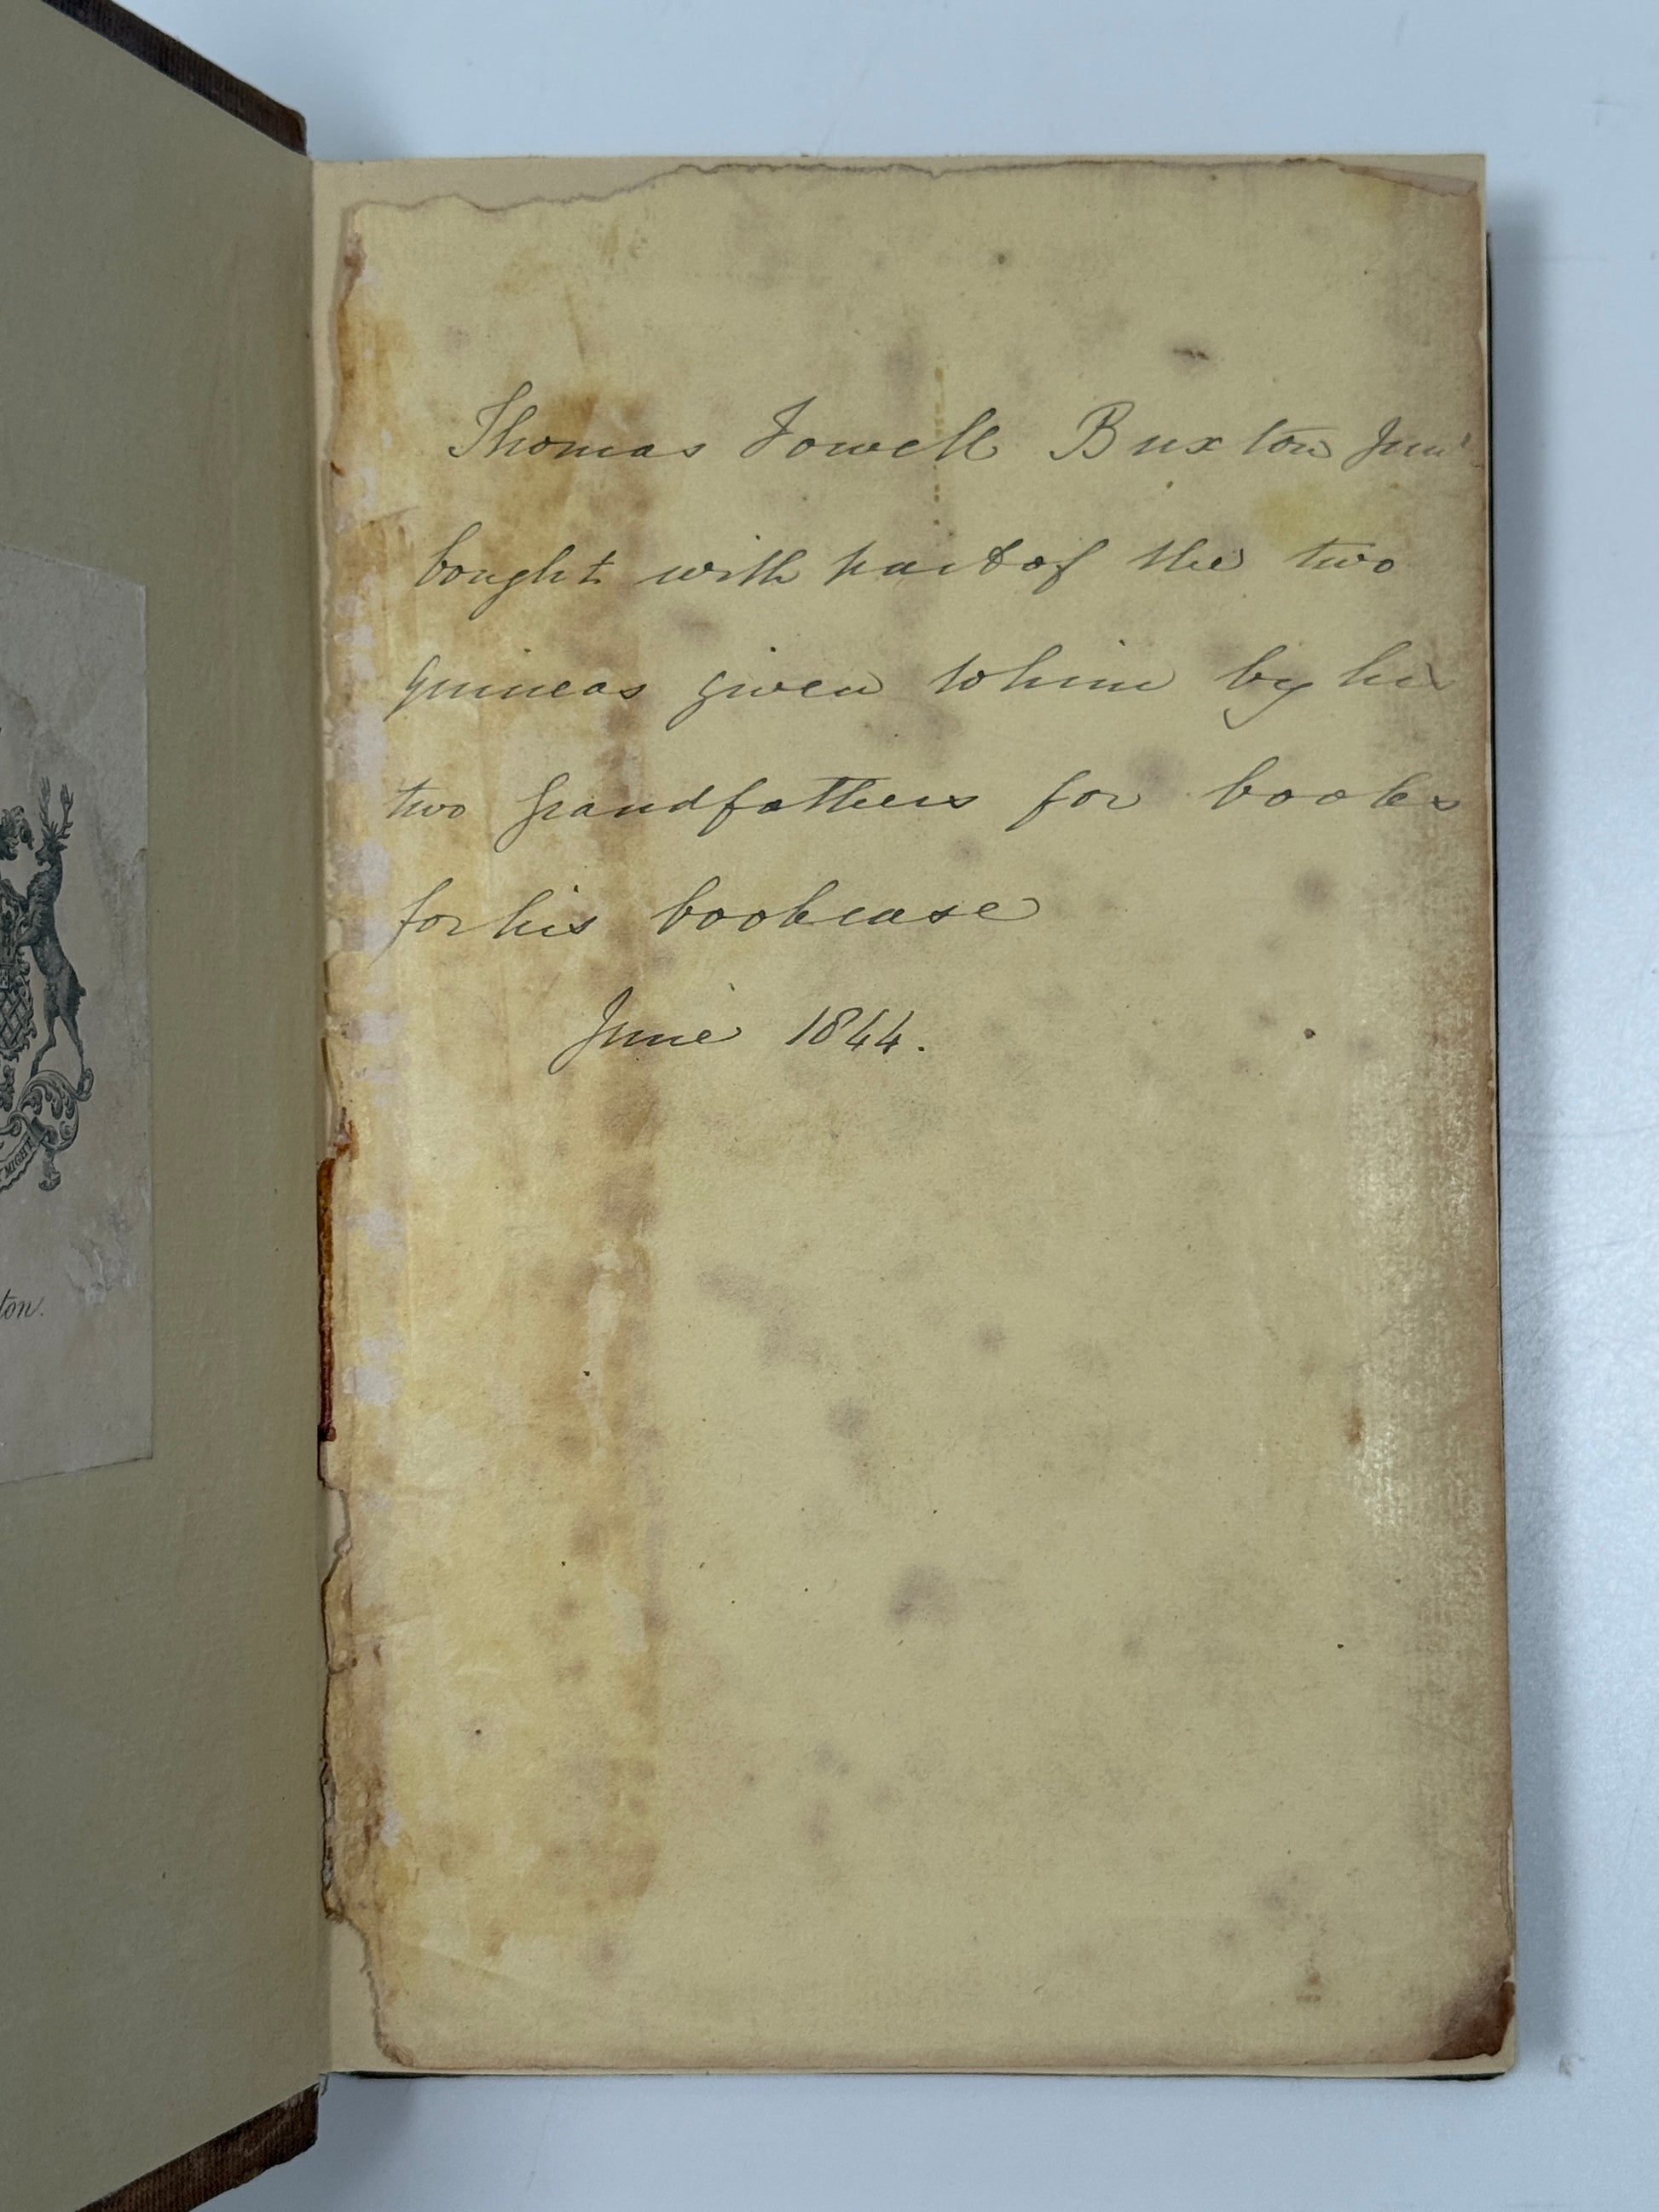 Thomas Fowell Buxton Junr
bought with part of the two
guineas given to him by his
two grandfathers for books
for his bookcase
June 1844.
MIGHT
ton.